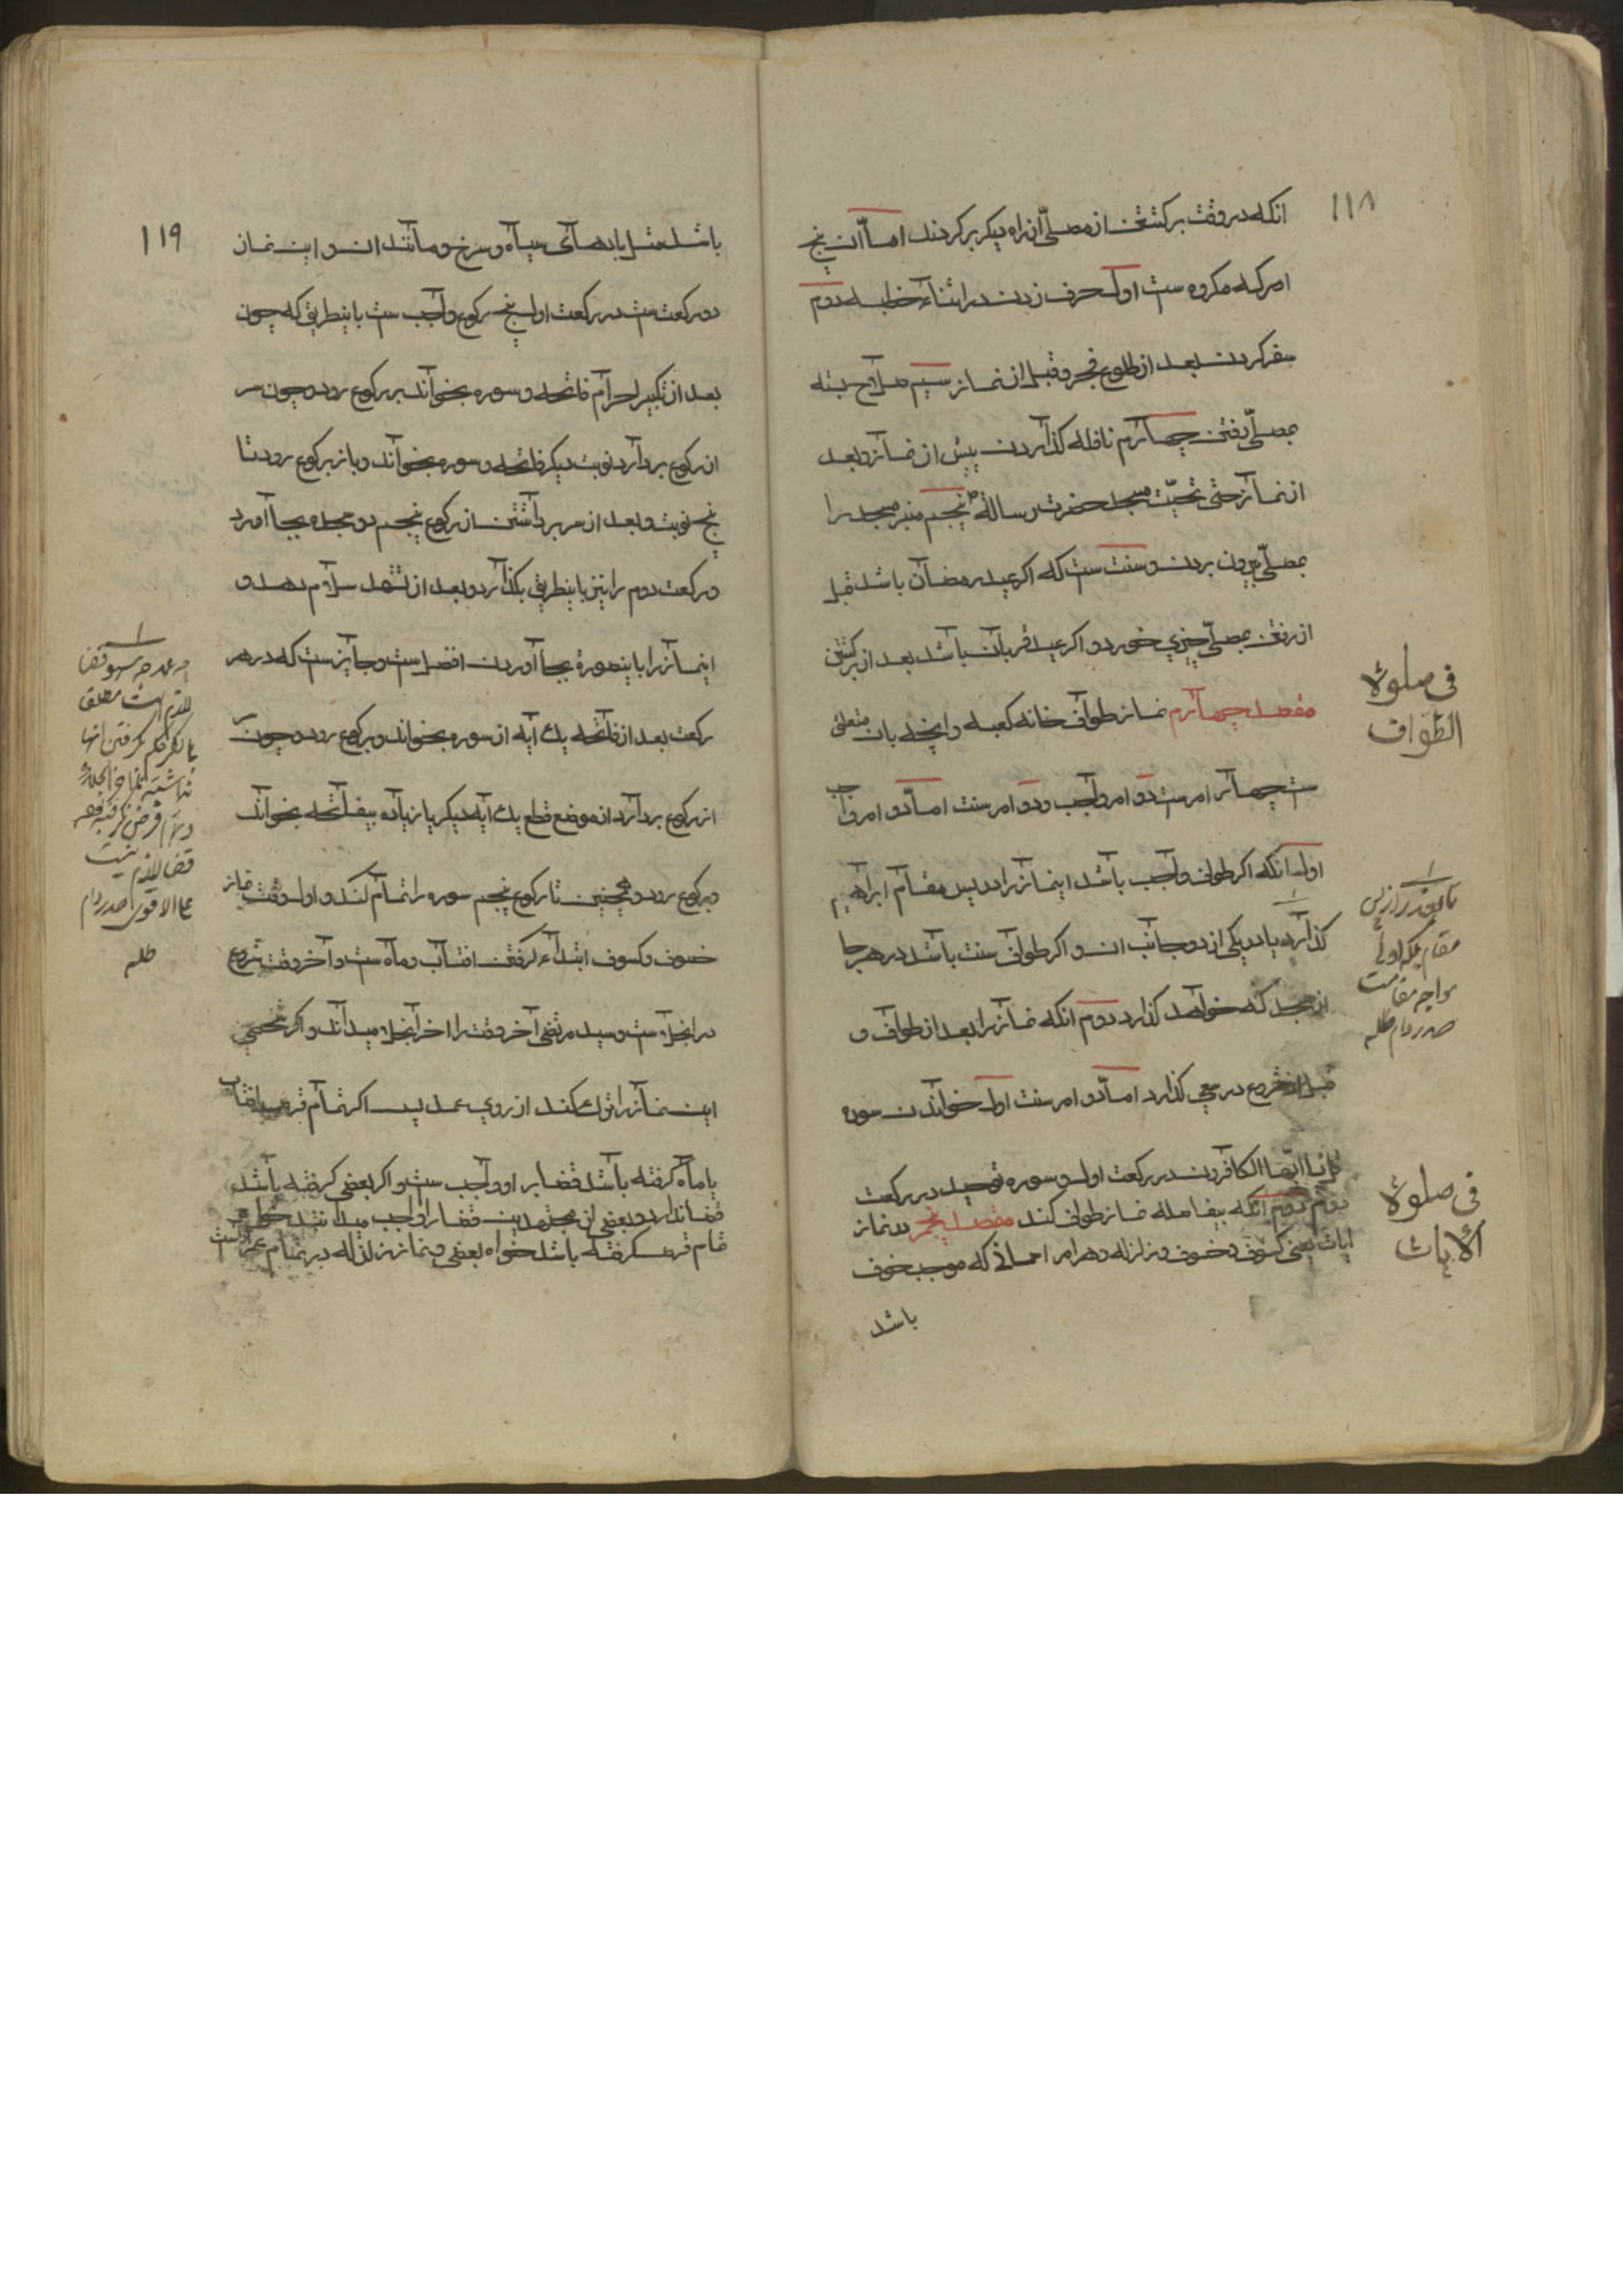 ١١٨
انکه در وقت برکشتن از مصلّی از راه دیکر برکردند امّا آن پنج
امر که مکروه ست اول حرف زدن در اثناء خطبه دوم
سفر کردن بعد از طلوع فجر و قبل از نماز سیم سلاح بسته
بمصلّی رفتن چهارم نافله کذاردن پیش از نماز و بعد
از نماز حتی تحیّت مسجد حضرت رسالة ص پنجم منبر مسجد را
بمصلّی بیرون بردن و سنت ست که اکر عید رمضان باشد قبل
از رفتن بمصلّی چیزی خورد و اکر عید قربان باشد بعد از برکشتن
مقصد چهارم نماز طواف خانه کعبه و انچه بان متعلق
ست چهار امرست دو امر واجب و دو امر سنت امّا دو امر واجب
اول انکه اکر طواف واجب باشد اینماز را در پس مقام ابراهیم
کذارد یا در یکی از دو جانب ان و اکر طواف سنت باشد در هر جا
از مسجد که خواهد کذارد دوم انکه نماز را بعد از طواف و
قبل از شروع در سعی کذارد امّا دو امر سنت اول خواندن سوره
قل یا ایّها الکافرون در رکعت اول و سوره توحید در رکعت
دوم دوم انکه بیفاصله نماز طواف کند مقصد پنجم در نماز
ایات یعنی کسوف و خسوف و زلزله و هر امر اسمانی که موجب خوف
باشد
فی صلوة
الطواف
مقام بلکه اولی
مواجه مقامست
صدر دام ظله
فی صلوة
الایات
١١٩
باشد مثل بادهای سیاه و سرخ و مانند ان و این نماز
دو رکعت ست در رکعت اول پنج رکوع واجب ست باینطریق که چون
بعد از تکبیر احرام فاتحه و سوره بخواند برکوع رود و چون سر
از رکوع بردارد نوبت دیکر فاتحه و سوره بخواند و باز برکوع رود تا
پنج نوبت و بعد از سر برداشتن از رکوع پنجم دو سجده بجا آورد
و رکعت دوم را نیز باینطریق بکذارد و بعد از تشهد سلام دهد و
اینماز را باینصورة بجا آوردن افضل ست و جایز ست که در هر
رکعت بعد از فاتحه یک آیه از سوره بخواند و برکوع رود و چون سر
از رکوع بردارد از موضع قطع یک آیه دیکر یا زیاده بیفاتحه بخواند
و برکوع رود و همچنین تا رکوع پنجم سوره را تمام کند و اول وقت نماز
خسوف و کسوف ابتداء کرفتن افتاب و ماه ست و آخر وقت شروع
در انجلا ست و سید مرتضی آخر وقت را اخر انجلا میداند و اکر شخصی
این نماز را ترک کند از روی عمد پس اکر تمام قرص افتاب
یا ماه کرفته باشد قضا بر او واجب ست و اکر بعضی کرفته باشد
قضا ندارد و بعضی از مجتهدین قضا را واجب میدانند خواه
تمام قرص کرفته باشد خواه بعضی و نماز زلزله در تمام عمر اداست
قضا لازم نیست
علی الاقوی صدر دام
ظله